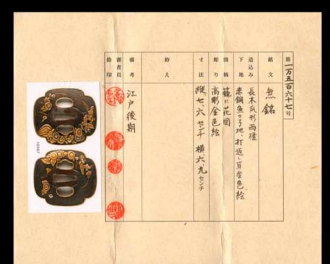 第一万五百六十七号
銘文 無銘
造込み 長木瓜形両櫃
下地 赤銅魚々子地、打返シ耳金色絵
図柄 籬ニ花図
彫り 高彫金色絵
寸法 縦七、六センチ 横六、九センチ
拵入
備考 江戸後期
審査員
捺印